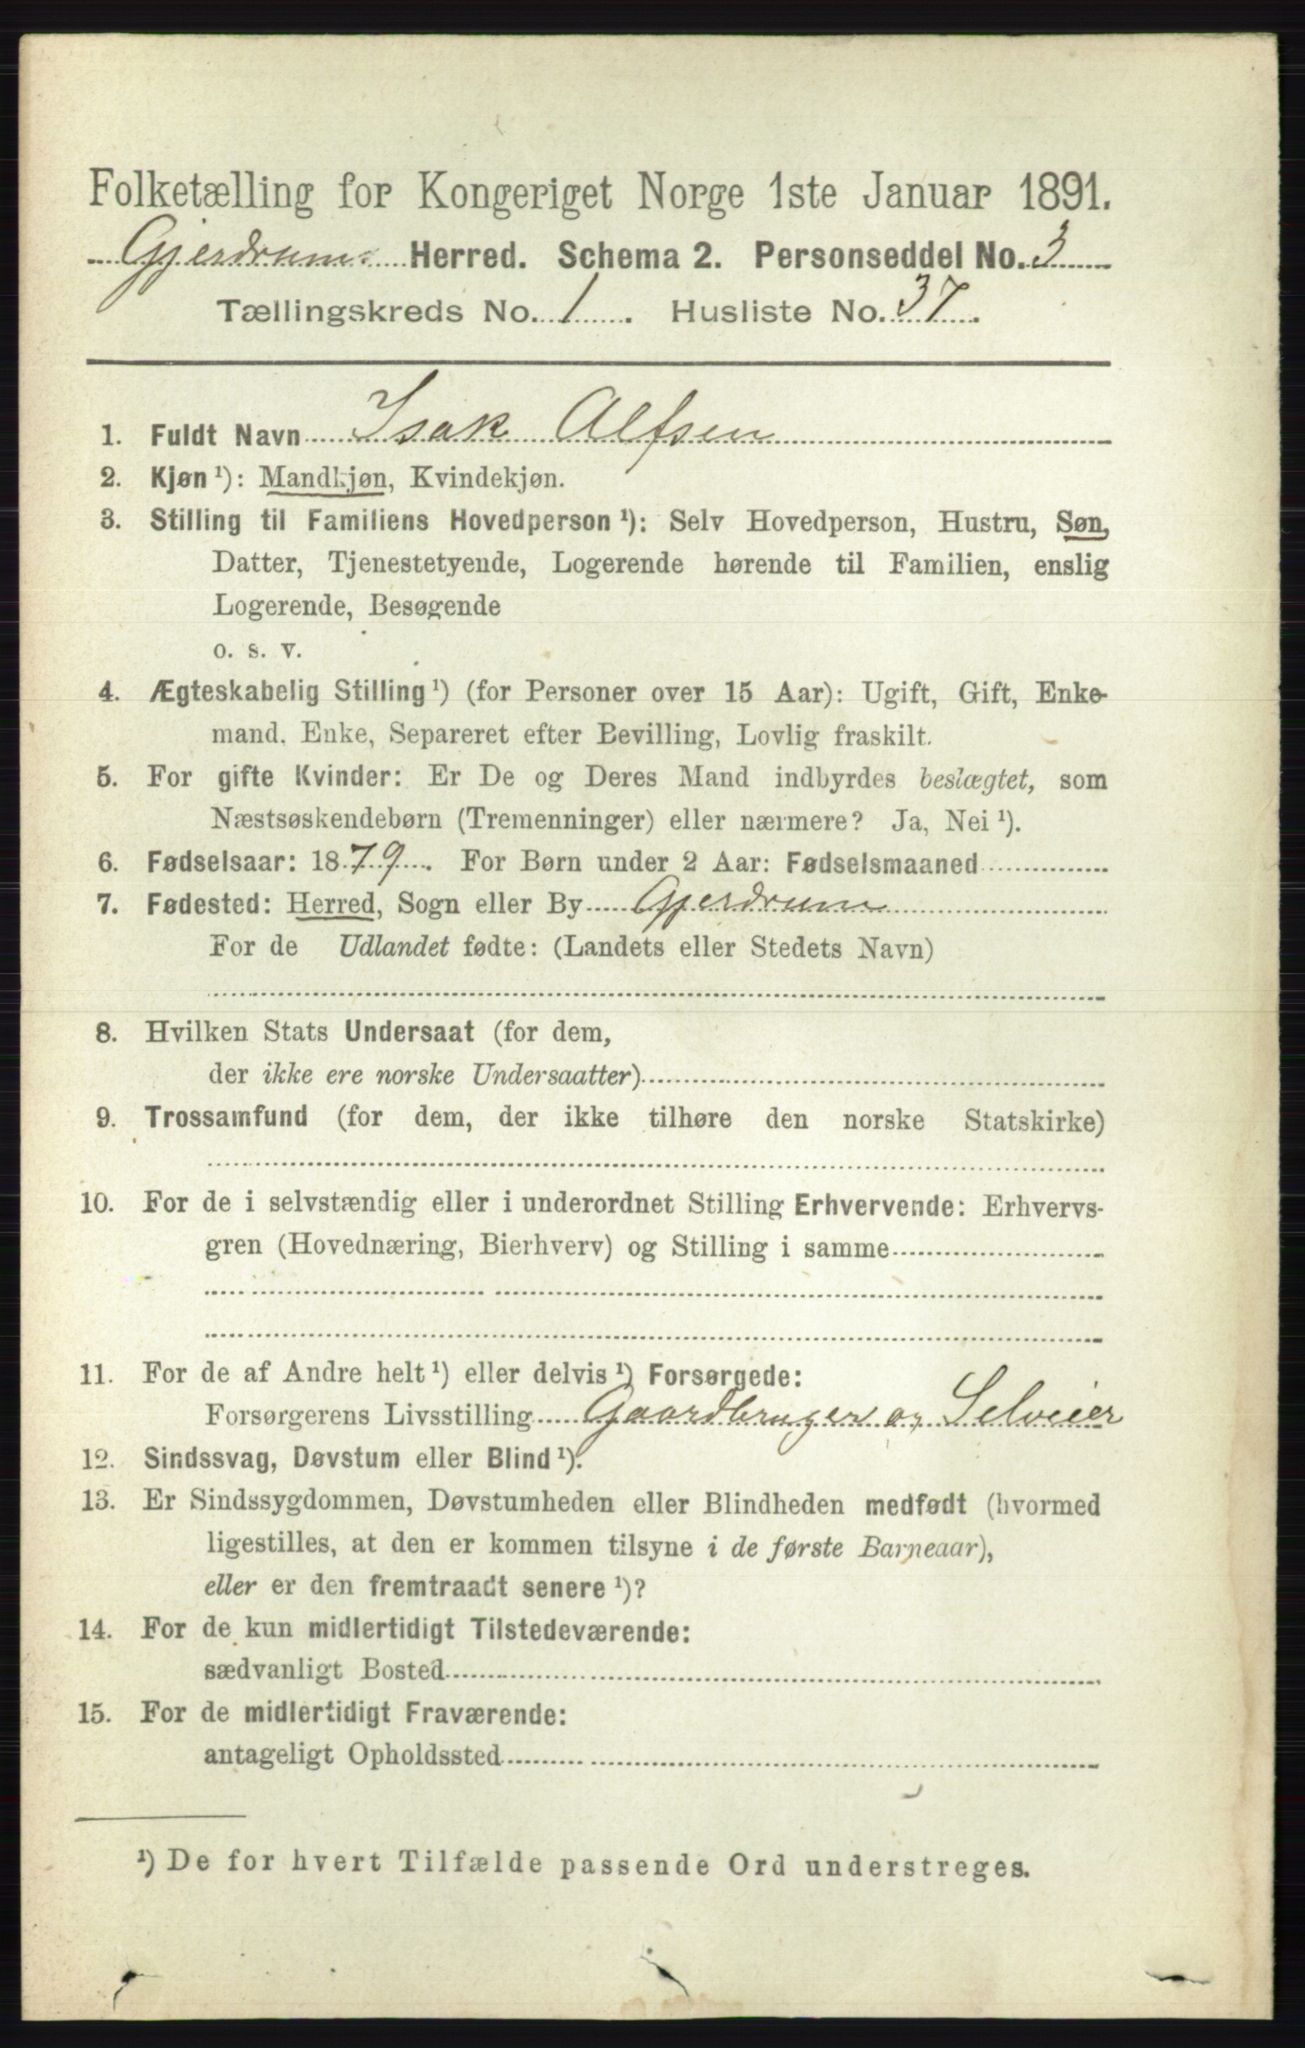 Folketælling for Kongeriget Norge 1ste Januar 1891.
Gjerdrum Herred. Schema 2. Personseddel No. 3
Tællingskreds No. 1. Husliste No. 37.
1. Fuldt Navn Isak Alfsen
2. Kjøn ¹): Mandkjøn, Kvindekjøn.
3. Stilling til Familiens Hovedperson ¹): Selv Hovedperson, Hustru, Søn,
Datter, Tjenestetyende, Logerende hørende til Familien, enslig
Logerende, Besøgende
o. s. v.
4. Ægteskabelig Stilling ¹) (for Personer over 15 Aar): Ugift, Gift, Enke-
mand, Enke, Separeret efter Bevilling, Lovlig fraskilt.
5. For gifte Kvinder: Er De og Deres Mand indbyrdes beslægtet, som
Næstsøskendebørn (Tremenninger) eller nærmere? Ja, Nei ¹).
6. Fødselsaar: 1879. For Børn under 2 Aar: Fødselsmaaned
7. Fødested: Herred, Sogn eller By Gjerdrum
For de Udlandet fødte: (Landets eller Stedets Navn)
8. Hvilken Stats Undersaat (for dem,
der ikke ere norske Undersaatter)
9. Trossamfund (for dem, der ikke tilhøre den norske Statskirke)
10. For de i selvstændig eller i underordnet Stilling Erhvervende: Erhvervs-
gren (Hovednæring, Bierhverv) og Stilling i samme
11. For de af Andre helt ¹) eller delvis ¹) Forsørgede:
Forsørgerens Livsstilling Gaardbruger og Selveier
12. Sindssvag, Døvstum eller Blind ¹).
13. Er Sindssygdommen, Døvstumheden eller Blindheden medfødt (hvormed
ligestilles, at den er kommen tilsyne i de første Barneaar),
eller er den fremtraadt senere ¹)?
14. For de kun midlertidigt Tilstedeværende:
sædvanligt Bosted
15. For de midlertidigt Fraværende:
antageligt Opholdssted
¹) De for hvert Tilfælde passende Ord understreges.